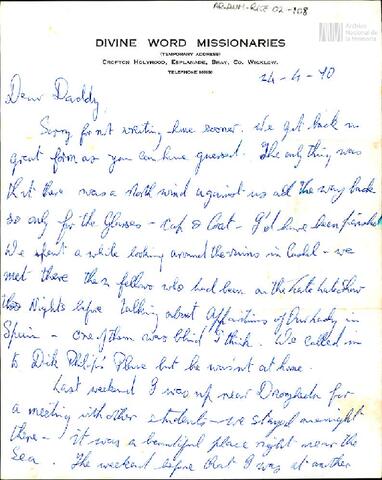 AR-ANM-RKF 02-108
Archivo
Nacional de
la Memoria
DIVINE WORD MISSIONARIES
(TEMPORARY ADDRESS)
Crofton Holyrood, Esplanade, Bray, Co. Wicklow.
TELEPHONE
24-4-70
Dear Daddy,
Sorry for not writing here sooner. We got back in
great form as you can have guessed. The only thing was
that there was a North wind against us all the way back
so only for the Glasses - Cap & Coat - I'd have been
We spent a while looking around the ruins in Cashel - we
met there the fellows who had been on the Late Late Show
Nights before talking about Apparitions of Our Lady in
Spain - one of them was blind I think. We called in
to Dick Phelps Place but he wasn't at home.
Last weekend I was up near Drogheda for
a meeting with other students - we stayed overnight
there - it was a beautiful place right near the
Sea. The weekend before that I was at another